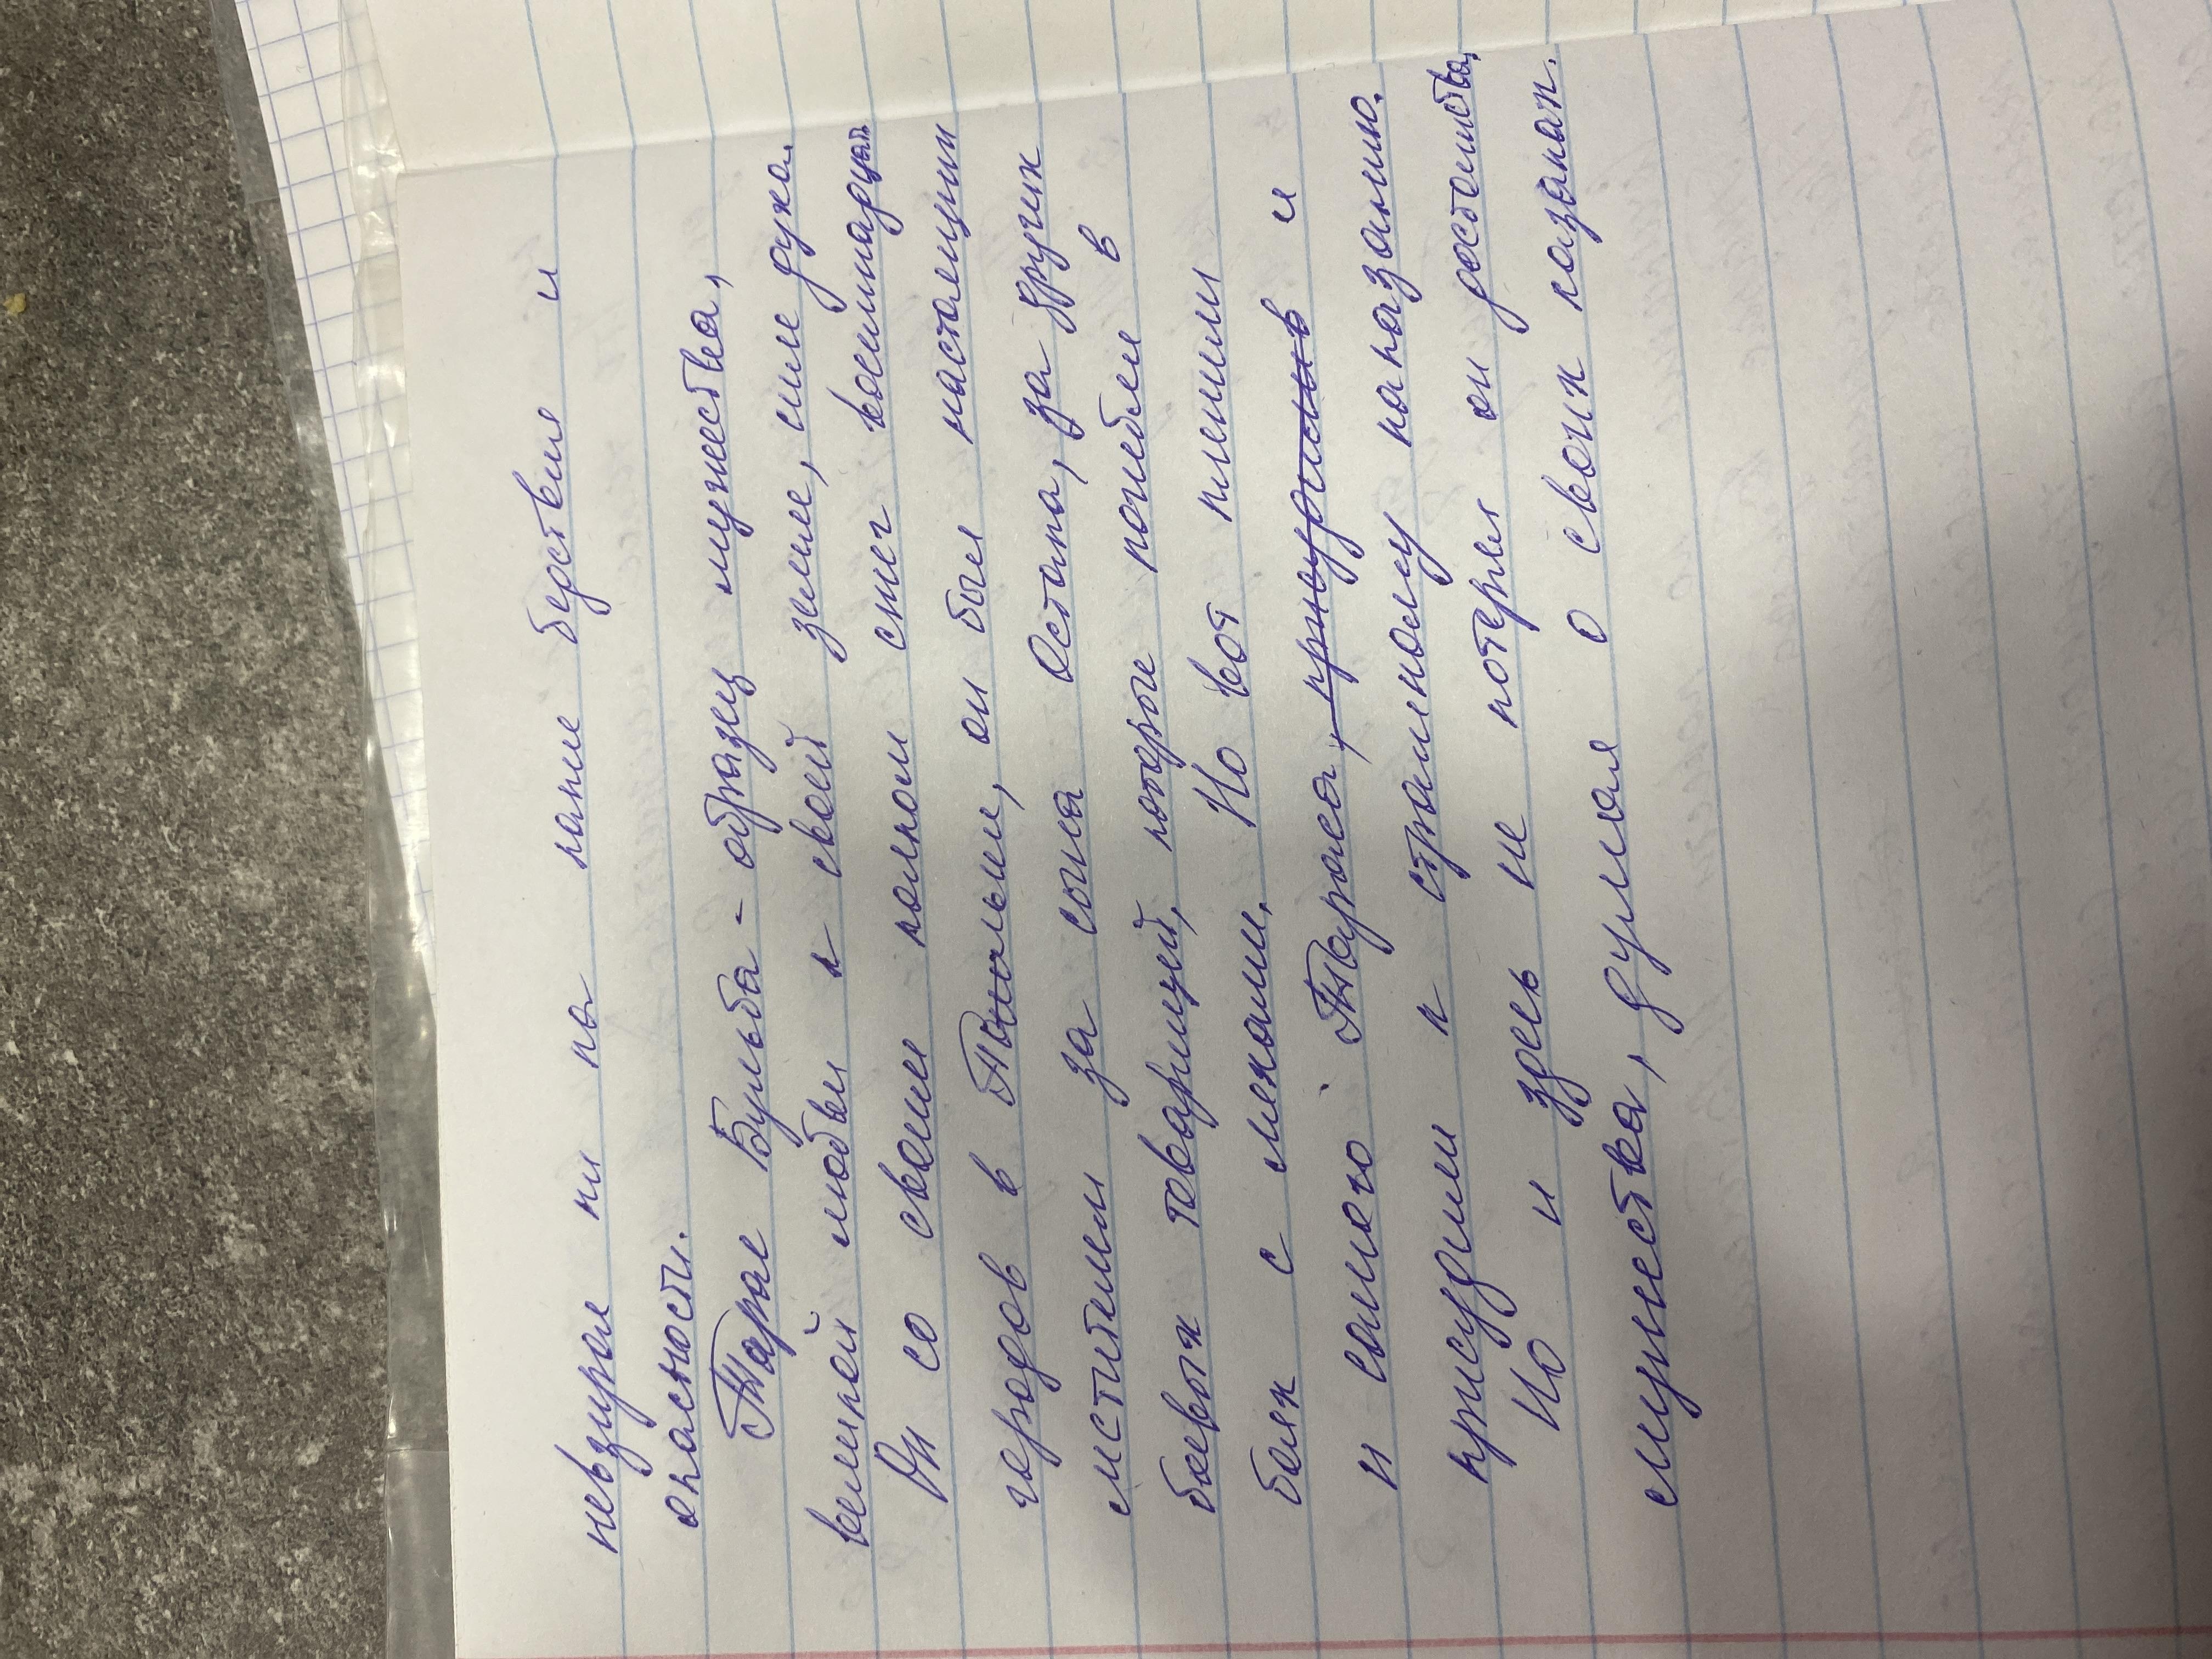 невзирая ни на какие бедствия и
опасности.
Тарас Бульба - образец мужества,
великой любви к своей земле, силе духа.
Он со своим полком сжег восемнадцать
городов в Польше, он был настоящим
мстителем за сына Остапа, за других
боевых товарищей, которые погибли в
боях с ляхами. Но вот пленили и
и самого Тараса, принудили в
присудили к страшному наказанию.
Но и здесь не потерял он достоинства,
мужества, думая о своих казаках.